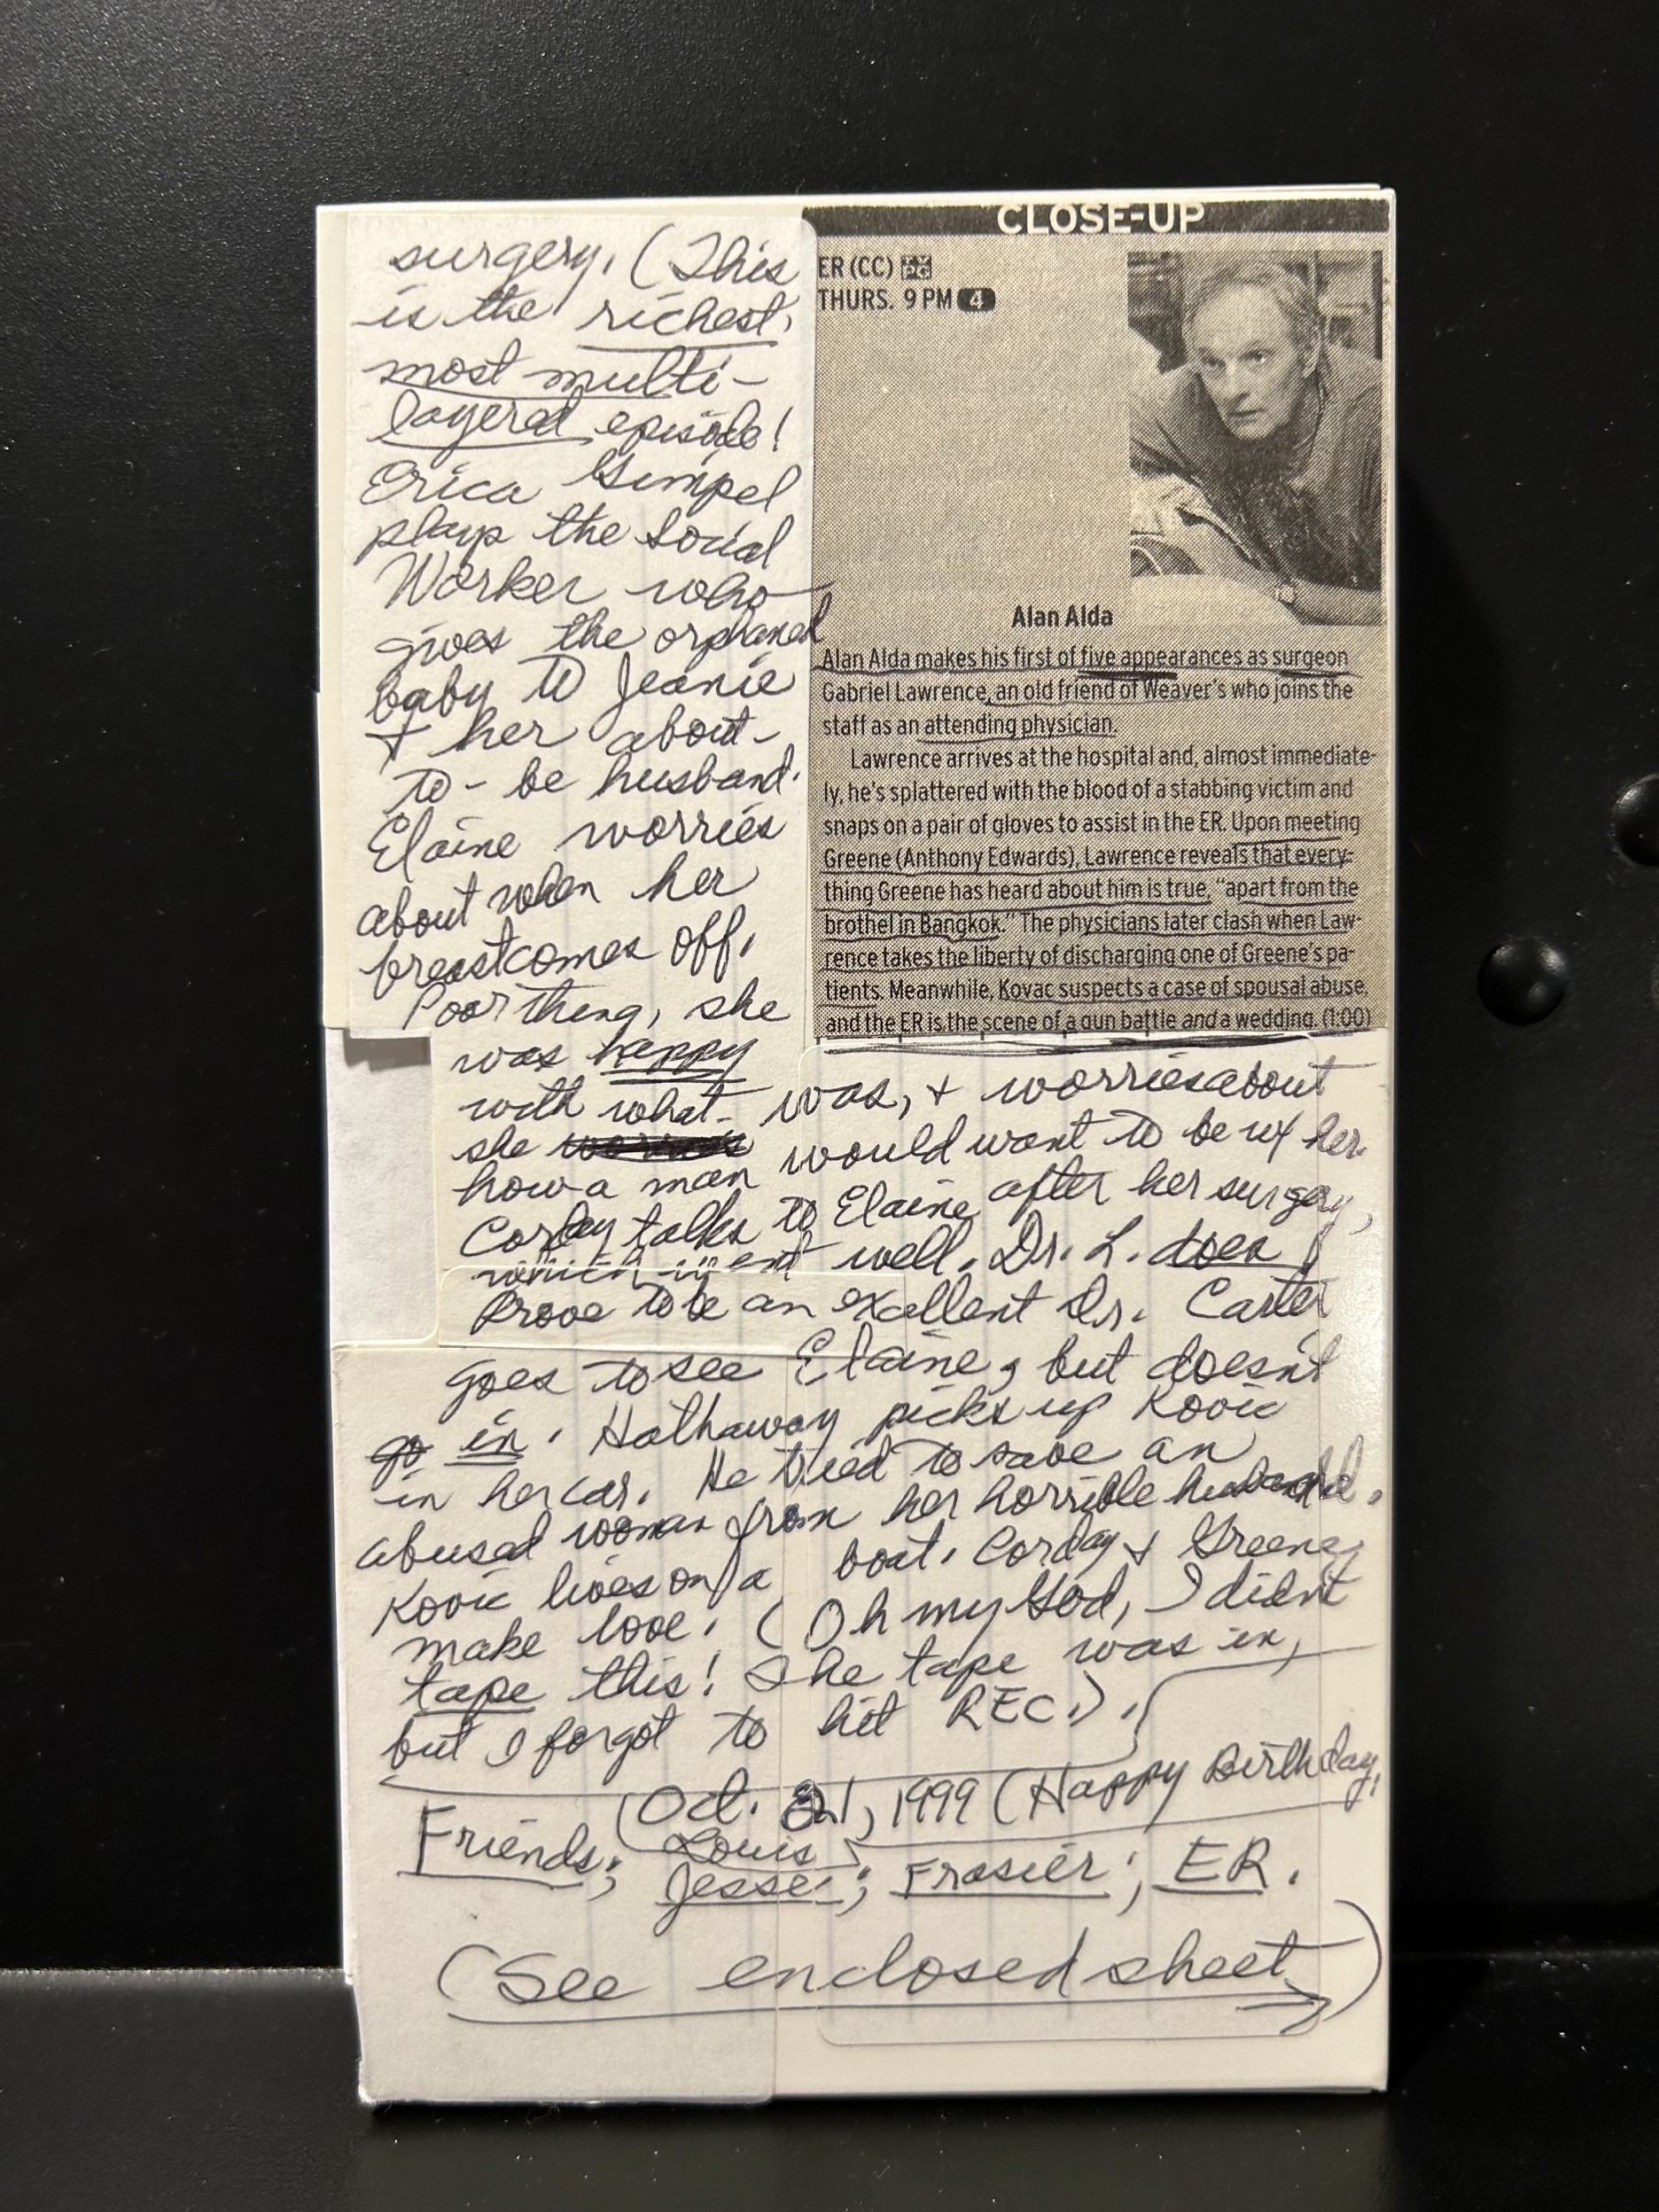 surgery. (This
is the richest,
most multi-
layered episode!
Erica Gimpel
plays the Social
Worker who
gives the orphaned
baby to Jeanie
+ her about-
to-be husband.
Elaine worries
about when her
breast comes off.
Poor thing, she
was happy
with what
she
CLOSE-UP
ER (CC) TV PG
THURS. 9 PM 4
Alan Alda
Alan Alda makes his first of five appearances as surgeon
Gabriel Lawrence, an old friend of Weaver's who joins the
staff as an attending physician.
Lawrence arrives at the hospital and, almost immediate-
ly, he's splattered with the blood of a stabbing victim and
snaps on a pair of gloves to assist in the ER. Upon meeting
Greene (Anthony Edwards), Lawrence reveals that every-
thing Greene has heard about him is true, "apart from the
brothel in Bangkok." The physicians later clash when Law-
rence takes the liberty of discharging one of Greene's pa-
tients. Meanwhile, Kovac suspects a case of spousal abuse,
and the ER is the scene of a gun battle and a wedding. (1:00)
was, + worries about
how a man would want to be w/ her.
Corday talks to Elaine after her surgery,
which went well. Dr. L. does
prove to be an excellent Dr. Carter
goes to see Elaine, but doesn't
go in. Hathaway picks up Kovic
in her car. He tried to save an
abused woman from her horrible husband.
Kovic lives on a boat. Corday + Greene
make love. (Oh my God, I didn't
tape this! The tape was in,
but I forgot to hit REC.).
Oct. 21, 1999 (Happy Birthday,
Louis
Friends; Jesse; Frasier; ER.
(See enclosed sheet)